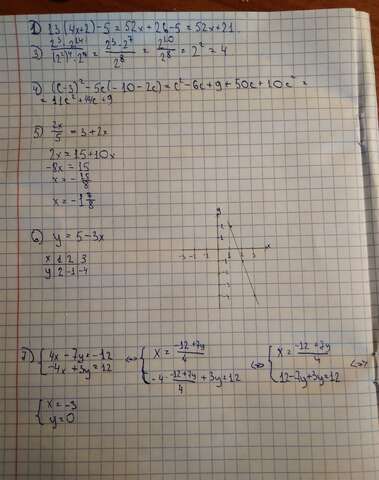 1) 13(4x+2)-5=52x+26-5=52x+21
= \frac{2^3·2^7}{2^8} = \frac{2^{10}}{2^8} = 2^2 = 4
4) (c-3)^2-5c(-10-2c)=c^2-6c+9+50c+10c^2=
=11c^2+44c+9
5) \frac{2x}{5} = 3+2x
2x=15+10x
-8x=15
x=-\frac{15}{8}
x=-1\frac{7}{8}
6) y=5-3x
x | 1 | 2 | 3
y | 2 | -1 | -4
7) {4x-7y=-12 <=> {x=\frac{-12+7y}{4} <=> {x=\frac{-12+7y}{4} <=>
{-4x+3y=12 {-4·\frac{-12+7y}{4}+3y=12 {12-7y+3y=12
{x=-3
{y=0